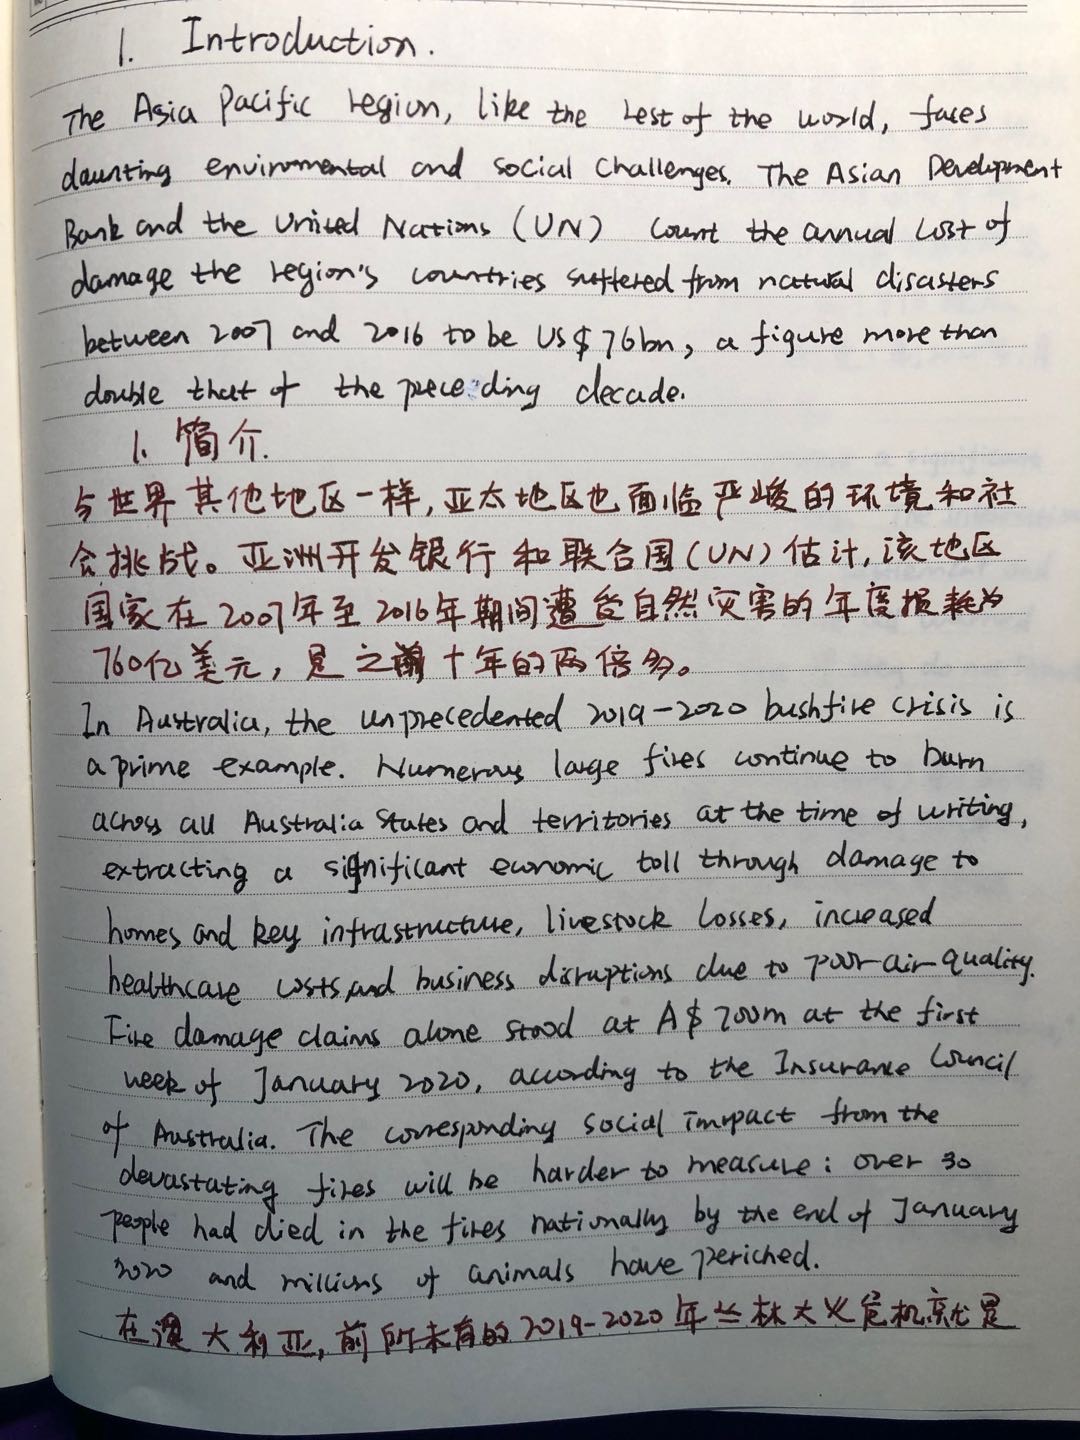 1. Introduction.
The Asia Pacific region, like the rest of the world, faces
daunting environmental and social challenges. The Asian Development
Bank and the United Nations (UN) count the annual cost of
damage the region's countries suffered from natural disasters
between 2007 and 2016 to be US$76bn, a figure more than
double that of the preceding decade.
1. 简介.
与世界其他地区一样,亚太地区也面临严峻的环境和社
会挑战。亚洲开发银行和联合国(UN)估计,该地区
国家在2007年至2016年期间遭受自然灾害的年度损耗为
760亿美元,是之前十年的两倍多。
In Australia, the unprecedented 2019-2020 bushfire crisis is
a prime example. Numerous large fires continue to burn
across all Australia states and territories at the time of writing,
extracting a significant economic toll through damage to
homes and key infrastructure, livestock losses, increased
healthcare costs and business disruptions due to poor air quality.
Fire damage claims alone stood at A$700m at the first
week of January 2020, according to the Insurance Council
of Australia. The corresponding social impact from the
devastating fires will be harder to measure: over 30
people had died in the fires nationally by the end of January
2020 and millions of animals have periched.
在澳大利亚,前所未有的2019-2020年丛林大火危机就是